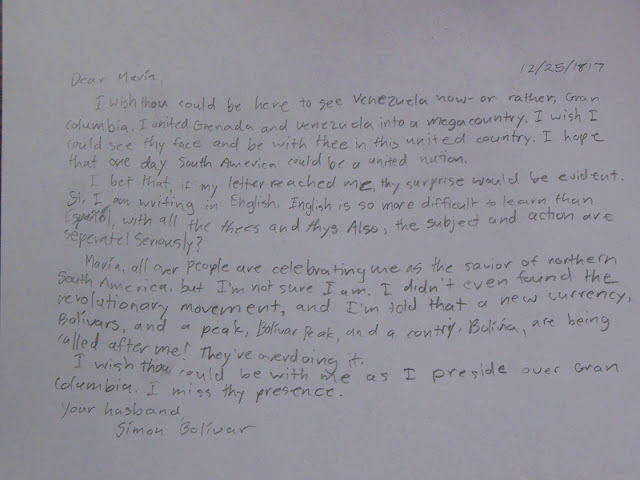 12/25/1817
Dear María,
I wish thou could be here to see Venezuela now- or rather, Gran
Columbia. I united Grenada and Venezuela into a megacountry. I wish I
could see thy face and be with thee in this united country. I hope
that one day South America could be a united nation.
I bet that, if my letter reached me, thy surprise would be evident.
Sí, I am writing in English. English is so more difficult to learn than
Español, with all the thees and thys. Also, the subject and action are
seperate! Seriously?
María, all over people are celebrating me as the savior of northern
South America, but I'm not sure I am. I didn't even found the
revolutionary movement, and I'm told that a new currency,
Bolívars, and a peak, Bolívar Peak, and a contry, Bolivia, are being
called after me! They're overdoing it.
I wish thou could be with me as I preside over Gran
Columbia. I miss thy presence.
Your husband,
Simon Bolívar